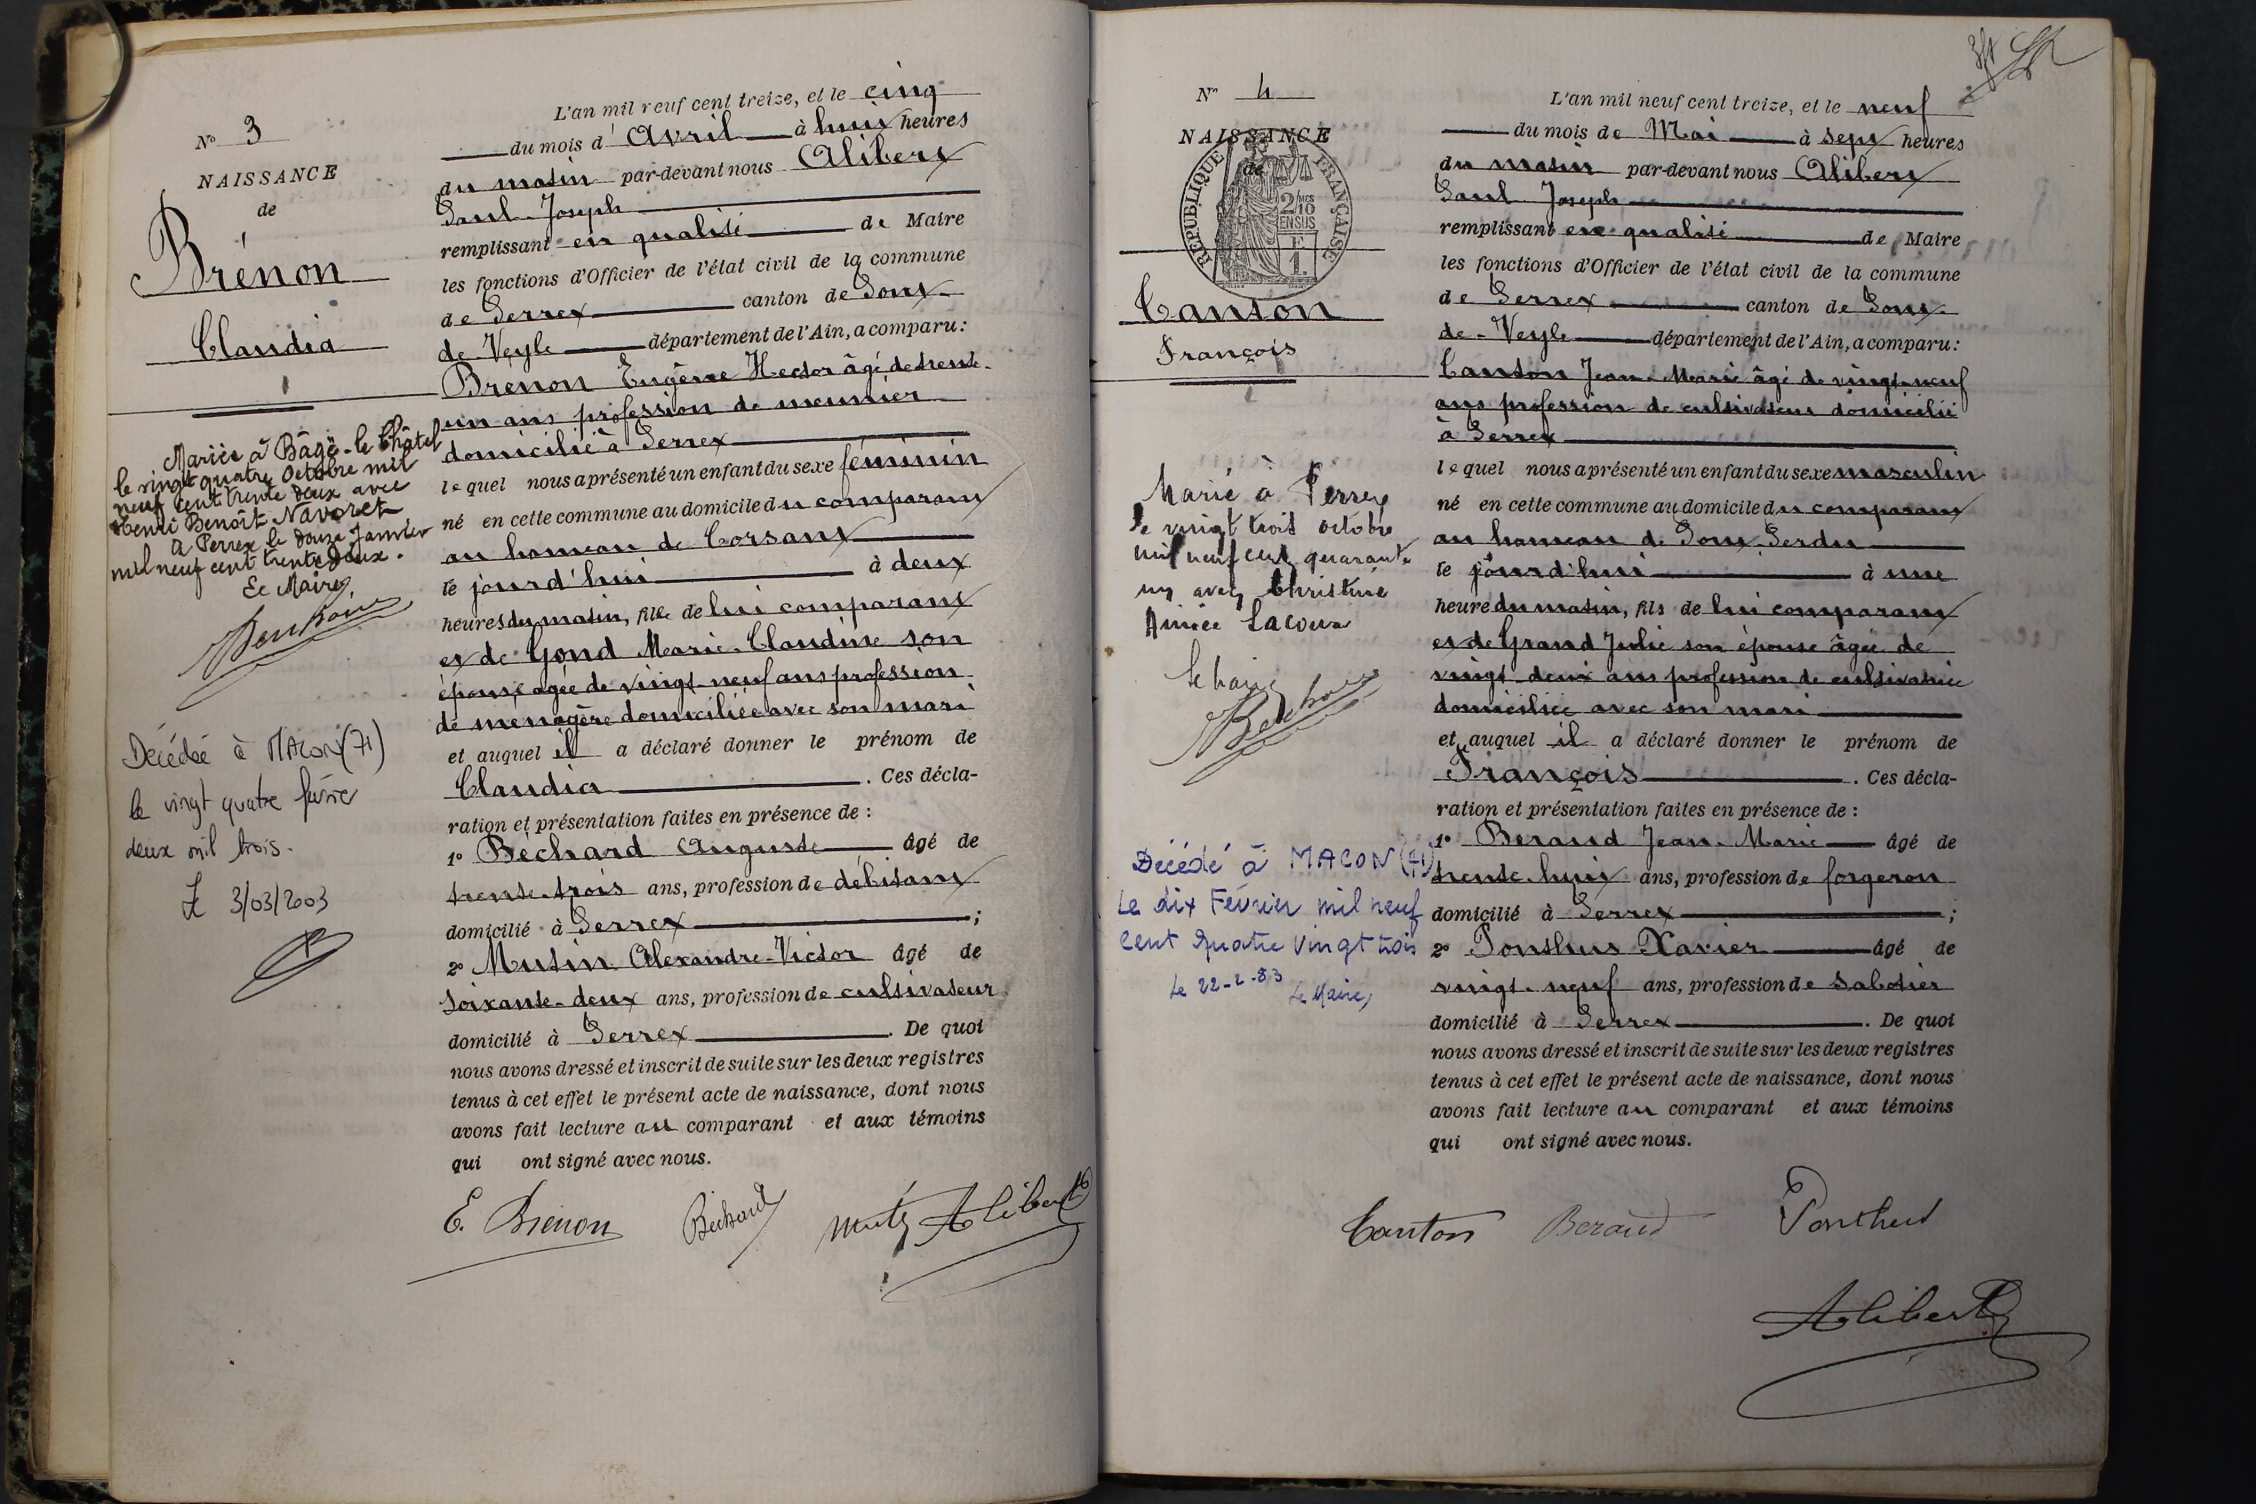 N° 3
NAISSANCE
de
Brénon
Claudia
Mariée à Bâgé-le-Châtel
le vingt quatre Octobre mil
neuf cent trente deux avec
Henri Benoît Navoret
A Perrex le douze Janvier
mil neuf cent trente deux.
Le Maire,
Décédée à MACON (71)
le vingt quatre février
deux mil trois.
Le 3/03/2003
L'an mil neuf cent treize, et le cinq
du mois d' Avril à huit heures
du matin par-devant nous Alibert
Paul Joseph
remplissant en qualité de Maire
les fonctions d'Officier de l'état civil de la commune
de Perrex canton de Pont
de Veyle département de l'Ain, a comparu :
Brénon Eugène Hector âgé de trente
un ans profession de meunier
domicilié à Perrex
lequel nous a présenté un enfant du sexe féminin
né en cette commune au domicile du comparant
au hameau de Corsant
le jourd'hui à deux
heures du matin, fille de lui comparant
et de Gond Marie-Claudine son
épouse agée de vingt-neuf ans profession
de menagère domiciliée avec son mari
et auquel il a déclaré donner le prénom de
Claudia. Ces décla-
ration et présentation faites en présence de :
1° Béchard Auguste âgé de
trente-trois ans, profession de débitant
domicilié à Perrex ;
2° Mutin Alexandre-Victor âgé de
soixante-deux ans, profession de cultivateur
domicilié à Perrex. De quoi
nous avons dressé et inscrit de suite sur les deux registres
tenus à cet effet le présent acte de naissance, dont nous
avons fait lecture au comparant et aux témoins
qui ont signé avec nous.
E. Brénon Béchard Mutin Alibert
N° 4
NAISSANCE
de
RÉPUBLIQUE FRANÇAISE
2/10 MES
EN SUS
F.
1.
Canton
François
Marié à Perrex
le vingt trois octobre
mil neuf cent quarante
un avec Christine
Aimée Lacour
Le Maire
Décédé à MACON (71)
Le dix Février mil neuf
cent quatre vingt trois
Le 22-2-83 Le Maire,
L'an mil neuf cent treize, et le neuf
du mois de Mai à sept heures
du matin par-devant nous Alibert
Paul Joseph
remplissant en qualité de Maire
les fonctions d'Officier de l'état civil de la commune
de Perrex canton de Pont
de-Veyle département de l'Ain, a comparu :
Canton Jean-Marie âgé de vingt-neuf
ans profession de cultivateur domicilié
à Perrex
lequel nous a présenté un enfant du sexe masculin
né en cette commune au domicile du comparant
au hameau de Pont Perdu
le jourd'hui à une
heure du matin, fils de lui comparant
et de Grand Julie son épouse âgée de
vingt-deux ans profession de cultivatrice
domiciliée avec son mari
et auquel il a déclaré donner le prénom de
François. Ces décla-
ration et présentation faites en présence de :
1° Beraud Jean-Marie âgé de
trente-huit ans, profession de forgeron
domicilié à Perrex ;
2° Ponthus Xavier âgé de
vingt-neuf ans, profession de sabotier
domicilié à Perrex. De quoi
nous avons dressé et inscrit de suite sur les deux registres
tenus à cet effet le présent acte de naissance, dont nous
avons fait lecture au comparant et aux témoins
qui ont signé avec nous.
Canton Beraud Ponthus
Alibert